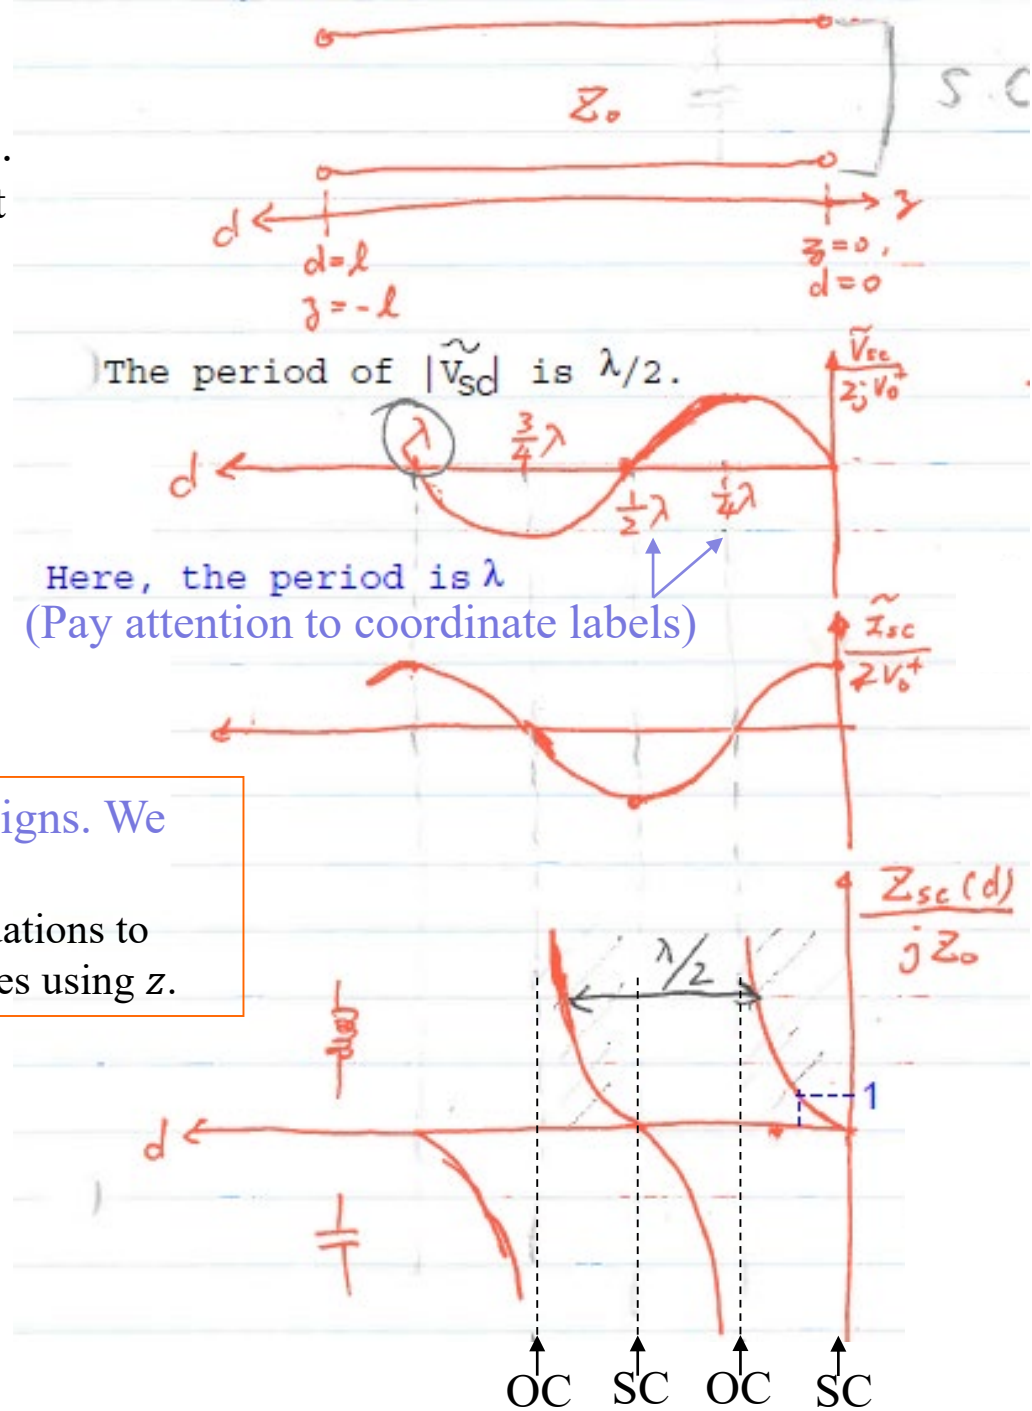 Z₀
S.C
.
t
d
z
d=l
z=-l
z=0,
d=0
)The period of |Ṽsc| is λ/2.
Ṽsc
2jV₀⁺
λ
3/4 λ
d
1/2 λ
1/4 λ
Here, the period is λ
(Pay attention to coordinate labels)
Ĩsc
2V₀⁺
igns. We
uations to
es using z.
Zsc(d)
jZ₀
λ/2
1
d
)
OC SC OC SC